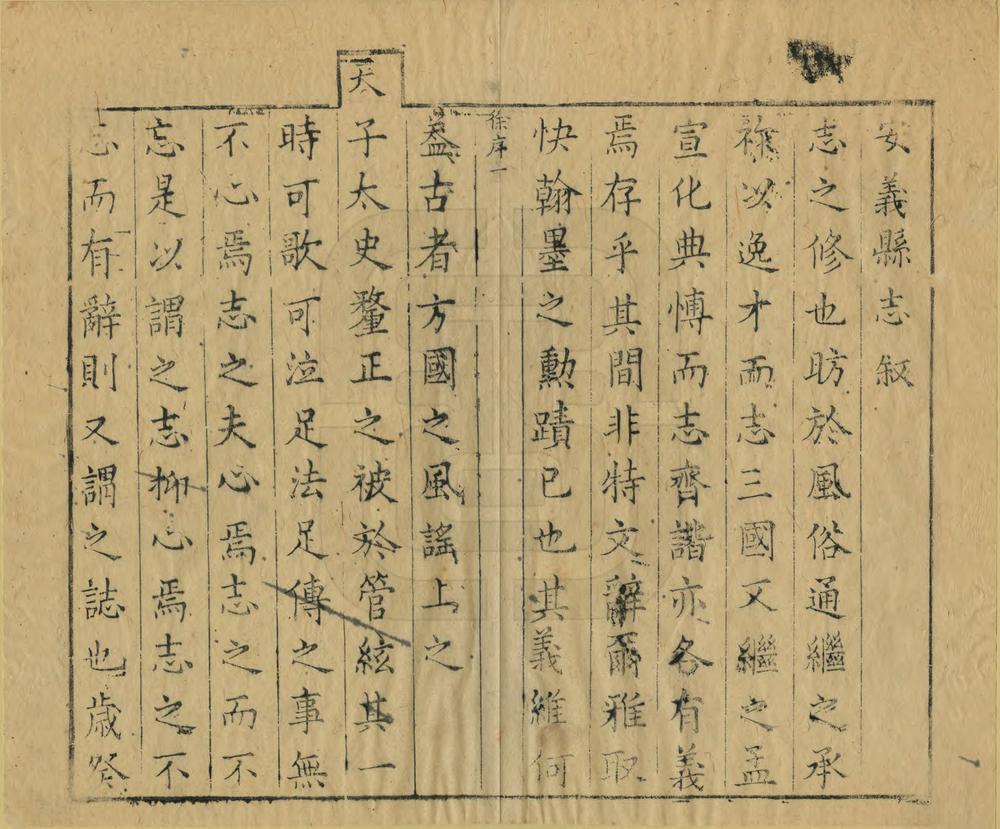 安義縣志叙
志之修也昉於風俗通繼之承
祚以逸才而志三國又繼之孟
宣化典愽而志齊諧亦各有義
焉存乎其間非特文辭爾雅取
快翰墨之勳蹟已也其義維何
徐序一
葢古者方國之風謠上之
天
子太史釐正之被於管絃其一
時可歌可泣足法足傳之事無
不心焉志之夫心焉志之而不
忘是以謂之志抑心焉志之不
忘而有辭則又謂之誌也歲癸